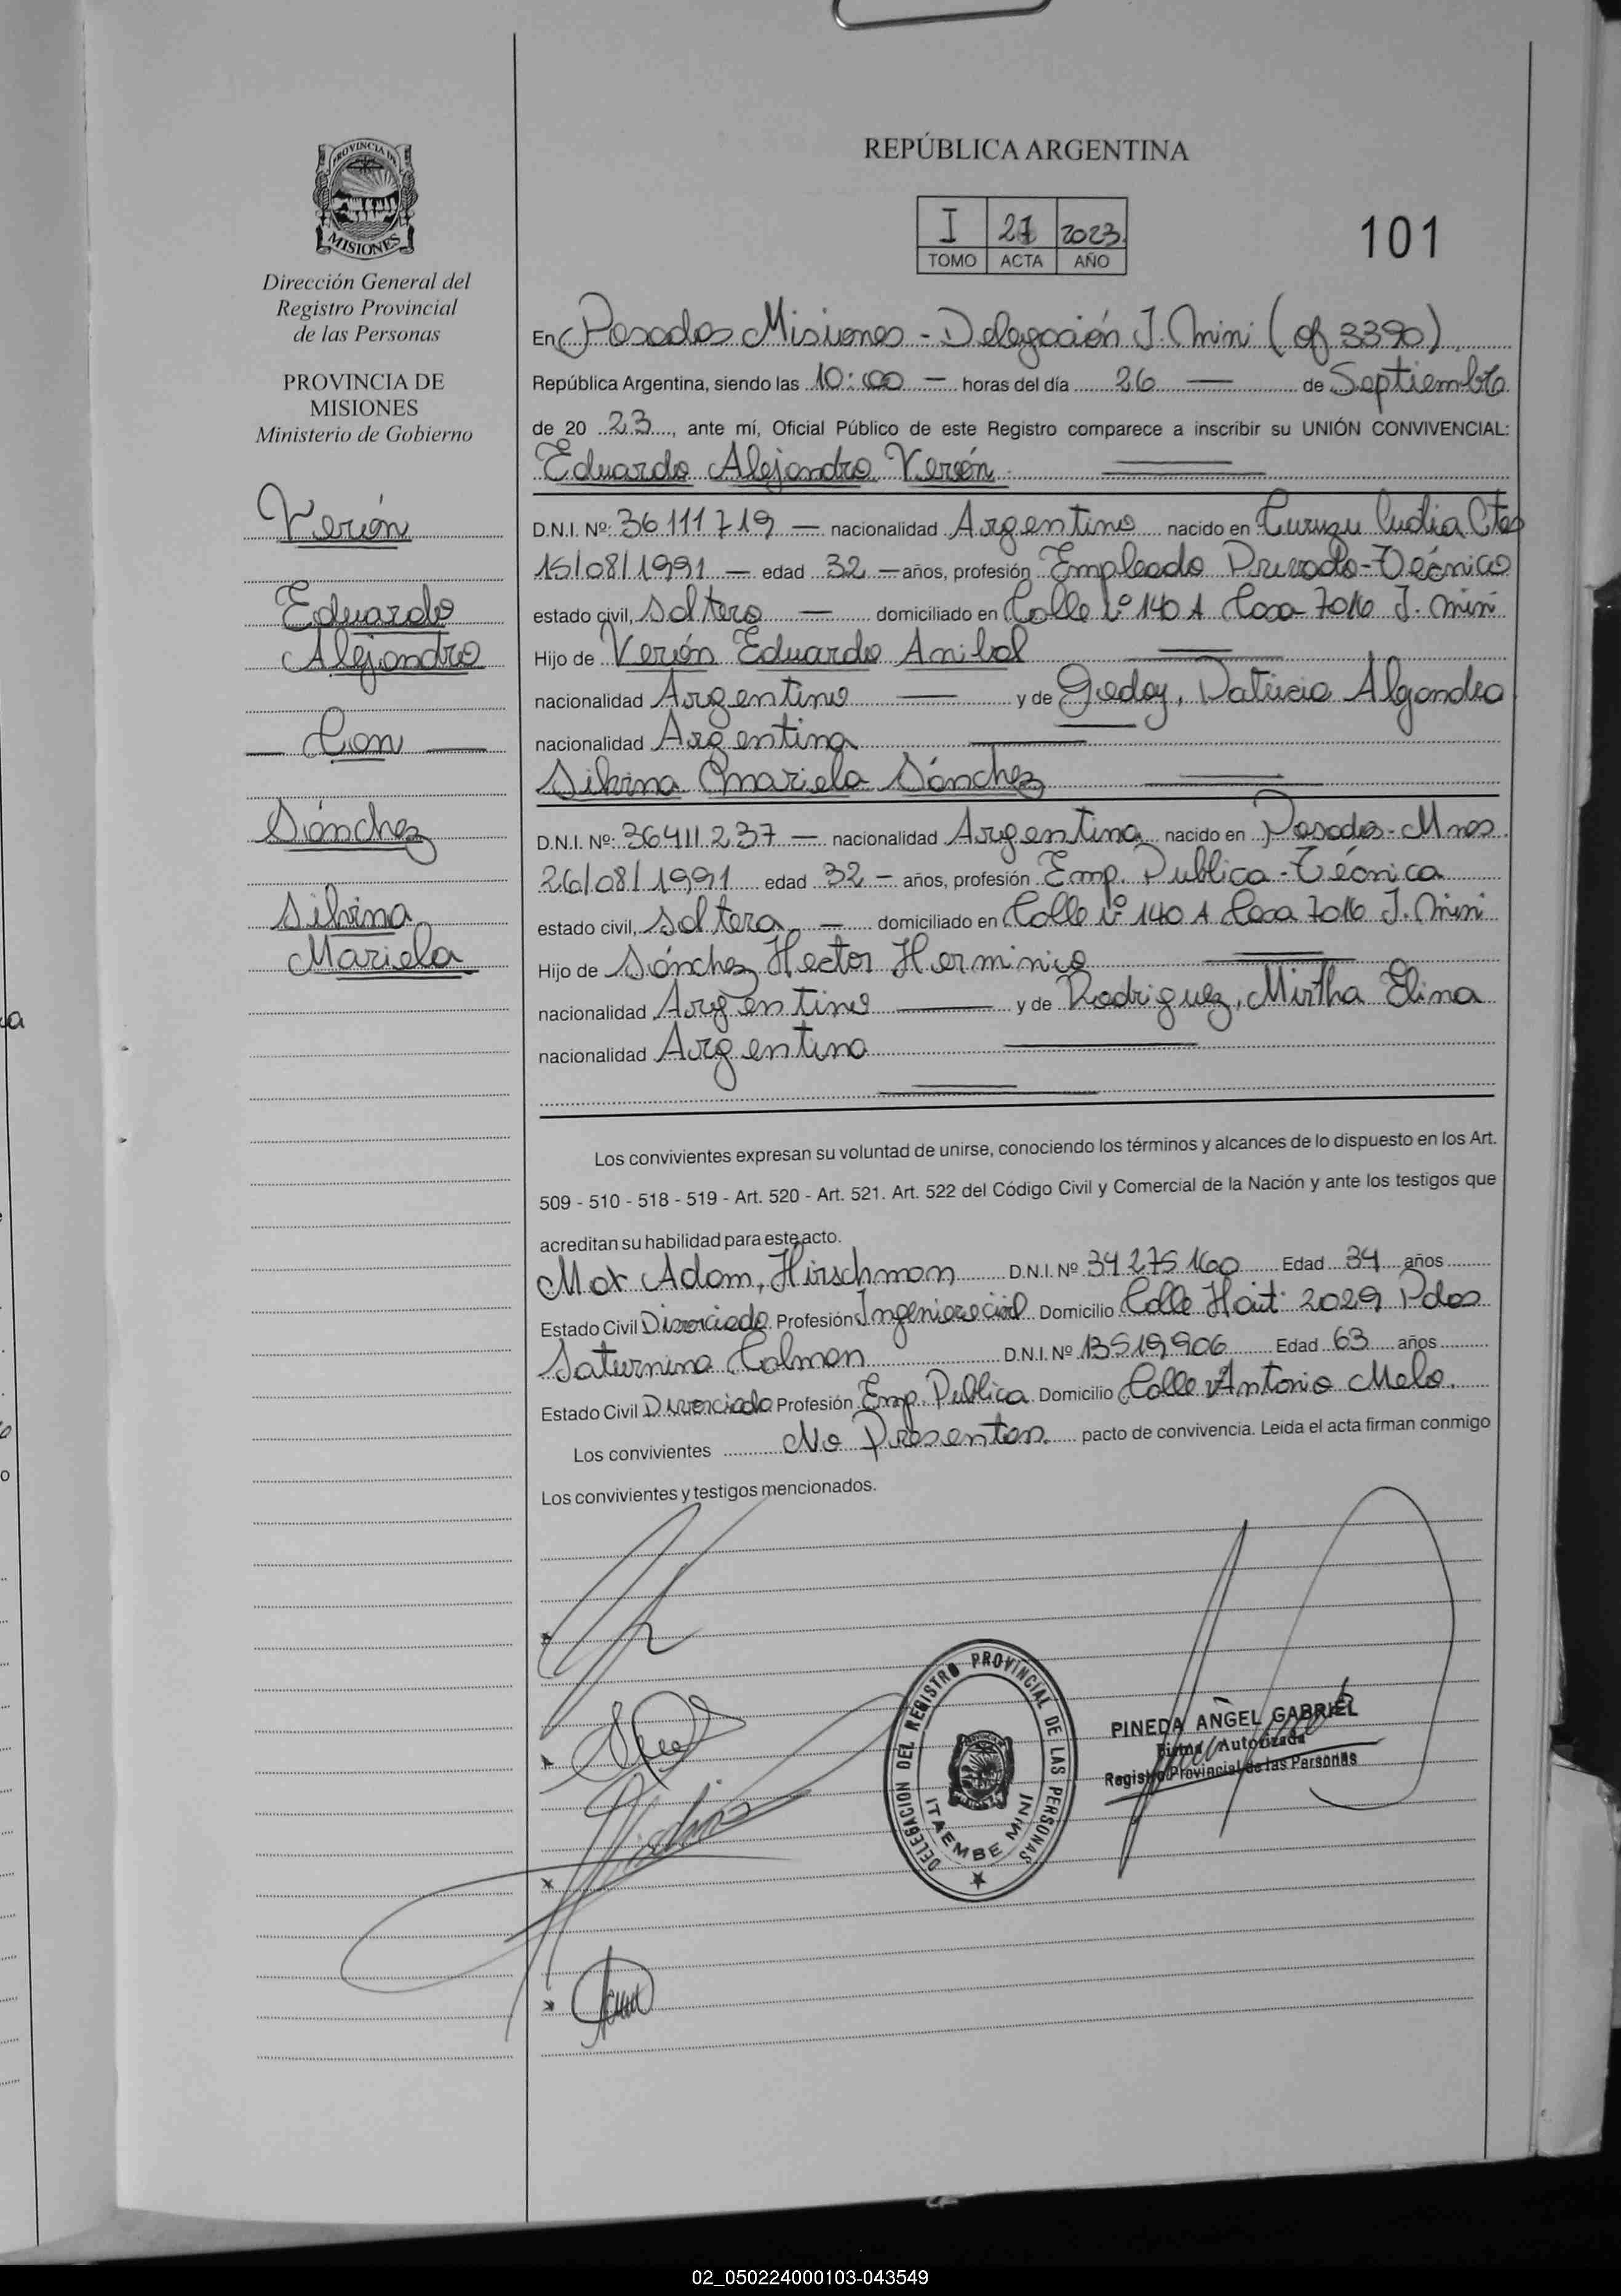 PROVINCIA DE
MISIONES
Dirección General del
Registro Provincial
de las Personas
PROVINCIA DE
MISIONES
Ministerio de Gobierno
Verón
Eduardo
Alejandro
Con
Sánchez
Silvina
Mariela
REPÚBLICA ARGENTINA
I 27 2023
TOMO ACTA AÑO
101
En Posadas Misiones - Delegación I. Mini (of 3390)
República Argentina, siendo las 10:00 horas del día 26 de Septiembre
de 20 23, ante mí, Oficial Público de este Registro comparece a inscribir su UNIÓN CONVIVENCIAL:
Eduardo Alejandro Verón
D.N.I. Nº: 36111719 nacionalidad Argentino nacido en Curuzu Cuatia Ctes
15/08/1991 edad 32 años, profesión Empleado Privado-Técnico
estado civil, Soltero domiciliado en Calle Nº 140 A Casa 7016 I. Mini
Hijo de Verón Eduardo Anibal
nacionalidad Argentino y de Godoy, Patricia Alejandra
nacionalidad Argentina
Silvina Mariela Sánchez
D.N.I. Nº: 36411237 nacionalidad Argentina nacido en Posadas-Mnes
26/08/1991 edad 32 años, profesión Emp. Publica-Técnica
estado civil, Soltera domiciliado en Calle Nº 140 A Casa 7016 I. Mini
Hijo de Sánchez Hector Herminio
nacionalidad Argentino y de Rodriguez, Mirtha Elina
nacionalidad Argentina
Los convivientes expresan su voluntad de unirse, conociendo los términos y alcances de lo dispuesto en los Art.
509 - 510 - 518 - 519 - Art. 520 - Art. 521. Art. 522 del Código Civil y Comercial de la Nación y ante los testigos que
acreditan su habilidad para este acto.
Max Adam, Hirschman D.N.I. Nº 34275160 Edad 34 años
Estado Civil Divorciado Profesión Ingeniero civil Domicilio Calle Haiti 2029 Pdas
Saturnina Calman D.N.I. Nº 13519906 Edad 63 años
Estado Civil Divorciada Profesión Emp. Publica Domicilio Calle Antonio Melo.
Los convivientes No Presentan pacto de convivencia. Leida el acta firman conmigo
Los convivientes y testigos mencionados.
DELEGACION DEL REGISTRO PROVINCIAL DE LAS PERSONAS
ITAEMBE MINI
PINEDA ANGEL GABRIEL
Firma Autorizada
Registro Provincial de las Personas
02_050224000103-043549